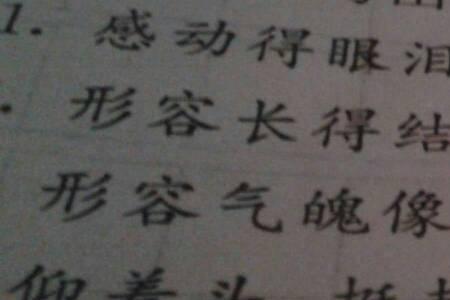 1. 感动得眼泪
. 形容长得结
形容气魄像
仰着头